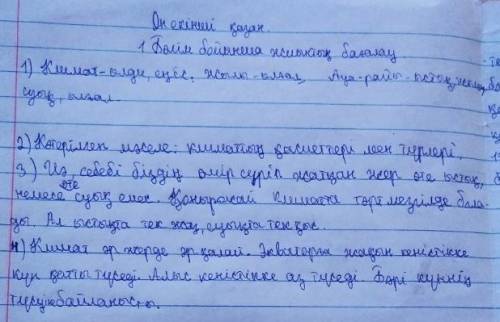 Он екінші қазан.
1 Бөлім бойынша жиынтық бағалау
1) Климат-елді, еңіс, жылы-ылғал, Ауа-райы-ыстық,
суық, ылғал.
2) Көтерілген мәселе: климаттың қасиеттері мен түрлері.
3) Иә, себебі біздің өмір сүріп жатқан жер өте ыстық,
немесе өте суық емес. Қоңыржай климатта төрт мезгілде бола-
ды. Ал ыстықта тек жаз, суықта тек қыс.
4) Климат әр жерде әр қалай. Экваторға жақын кеңістікке
күн қатты түседі. Алыс кеңістікке аз түседі. Бәрі күннің
түсуіне байланысты.